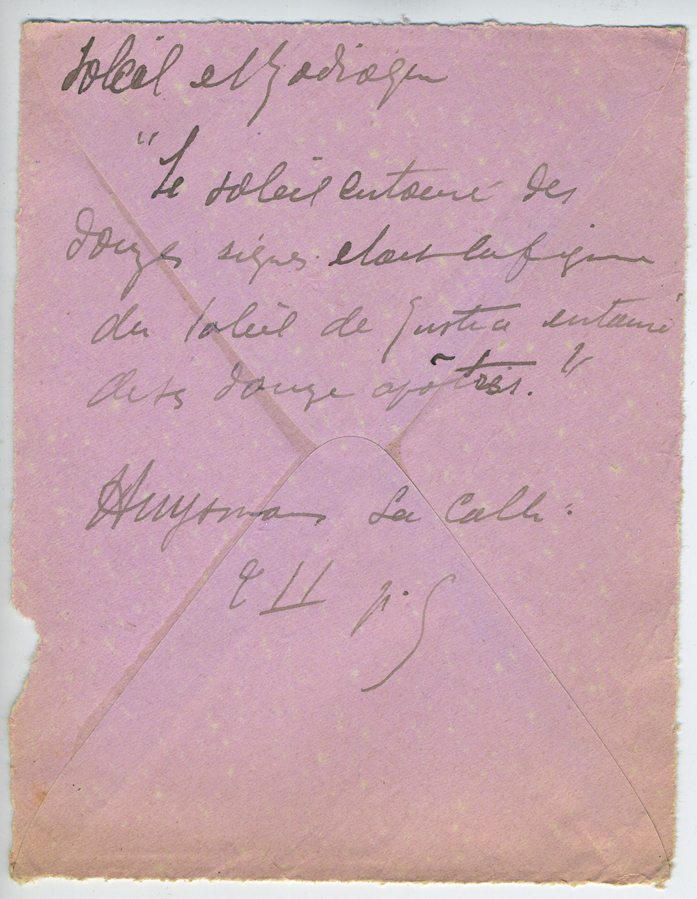 Soleil et Zodiaque
"Le soleil entouré des
douze signes était la figure
du Soleil de Justice entouré
de ses douze apôtres."
Huysmans La Cath:
t II p. 5